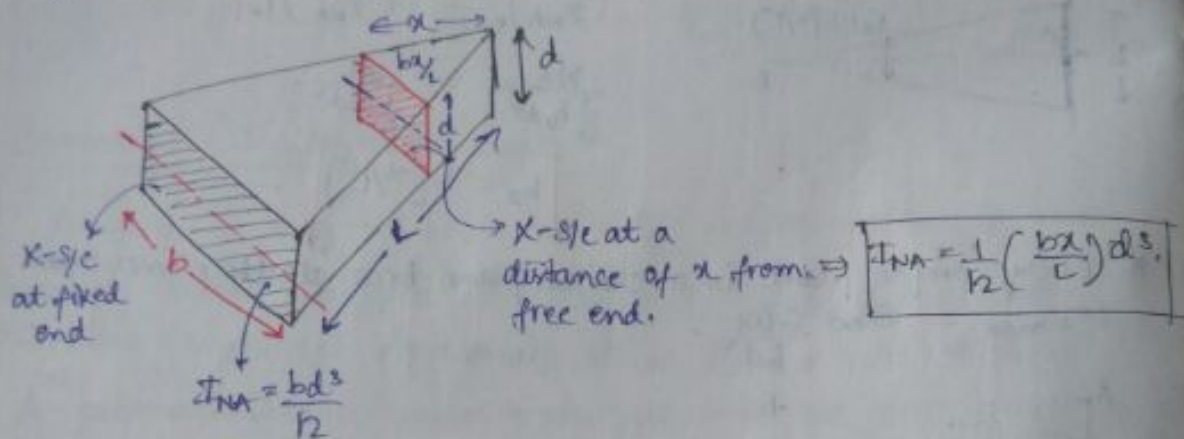 x
bx/L
d
d
L
b
X-S/C
at fixed
end
X-S/C at a
distance of x from
free end.
⇒ I_NA = 1/12 (bx/L) d³.
I_NA = bd³/12